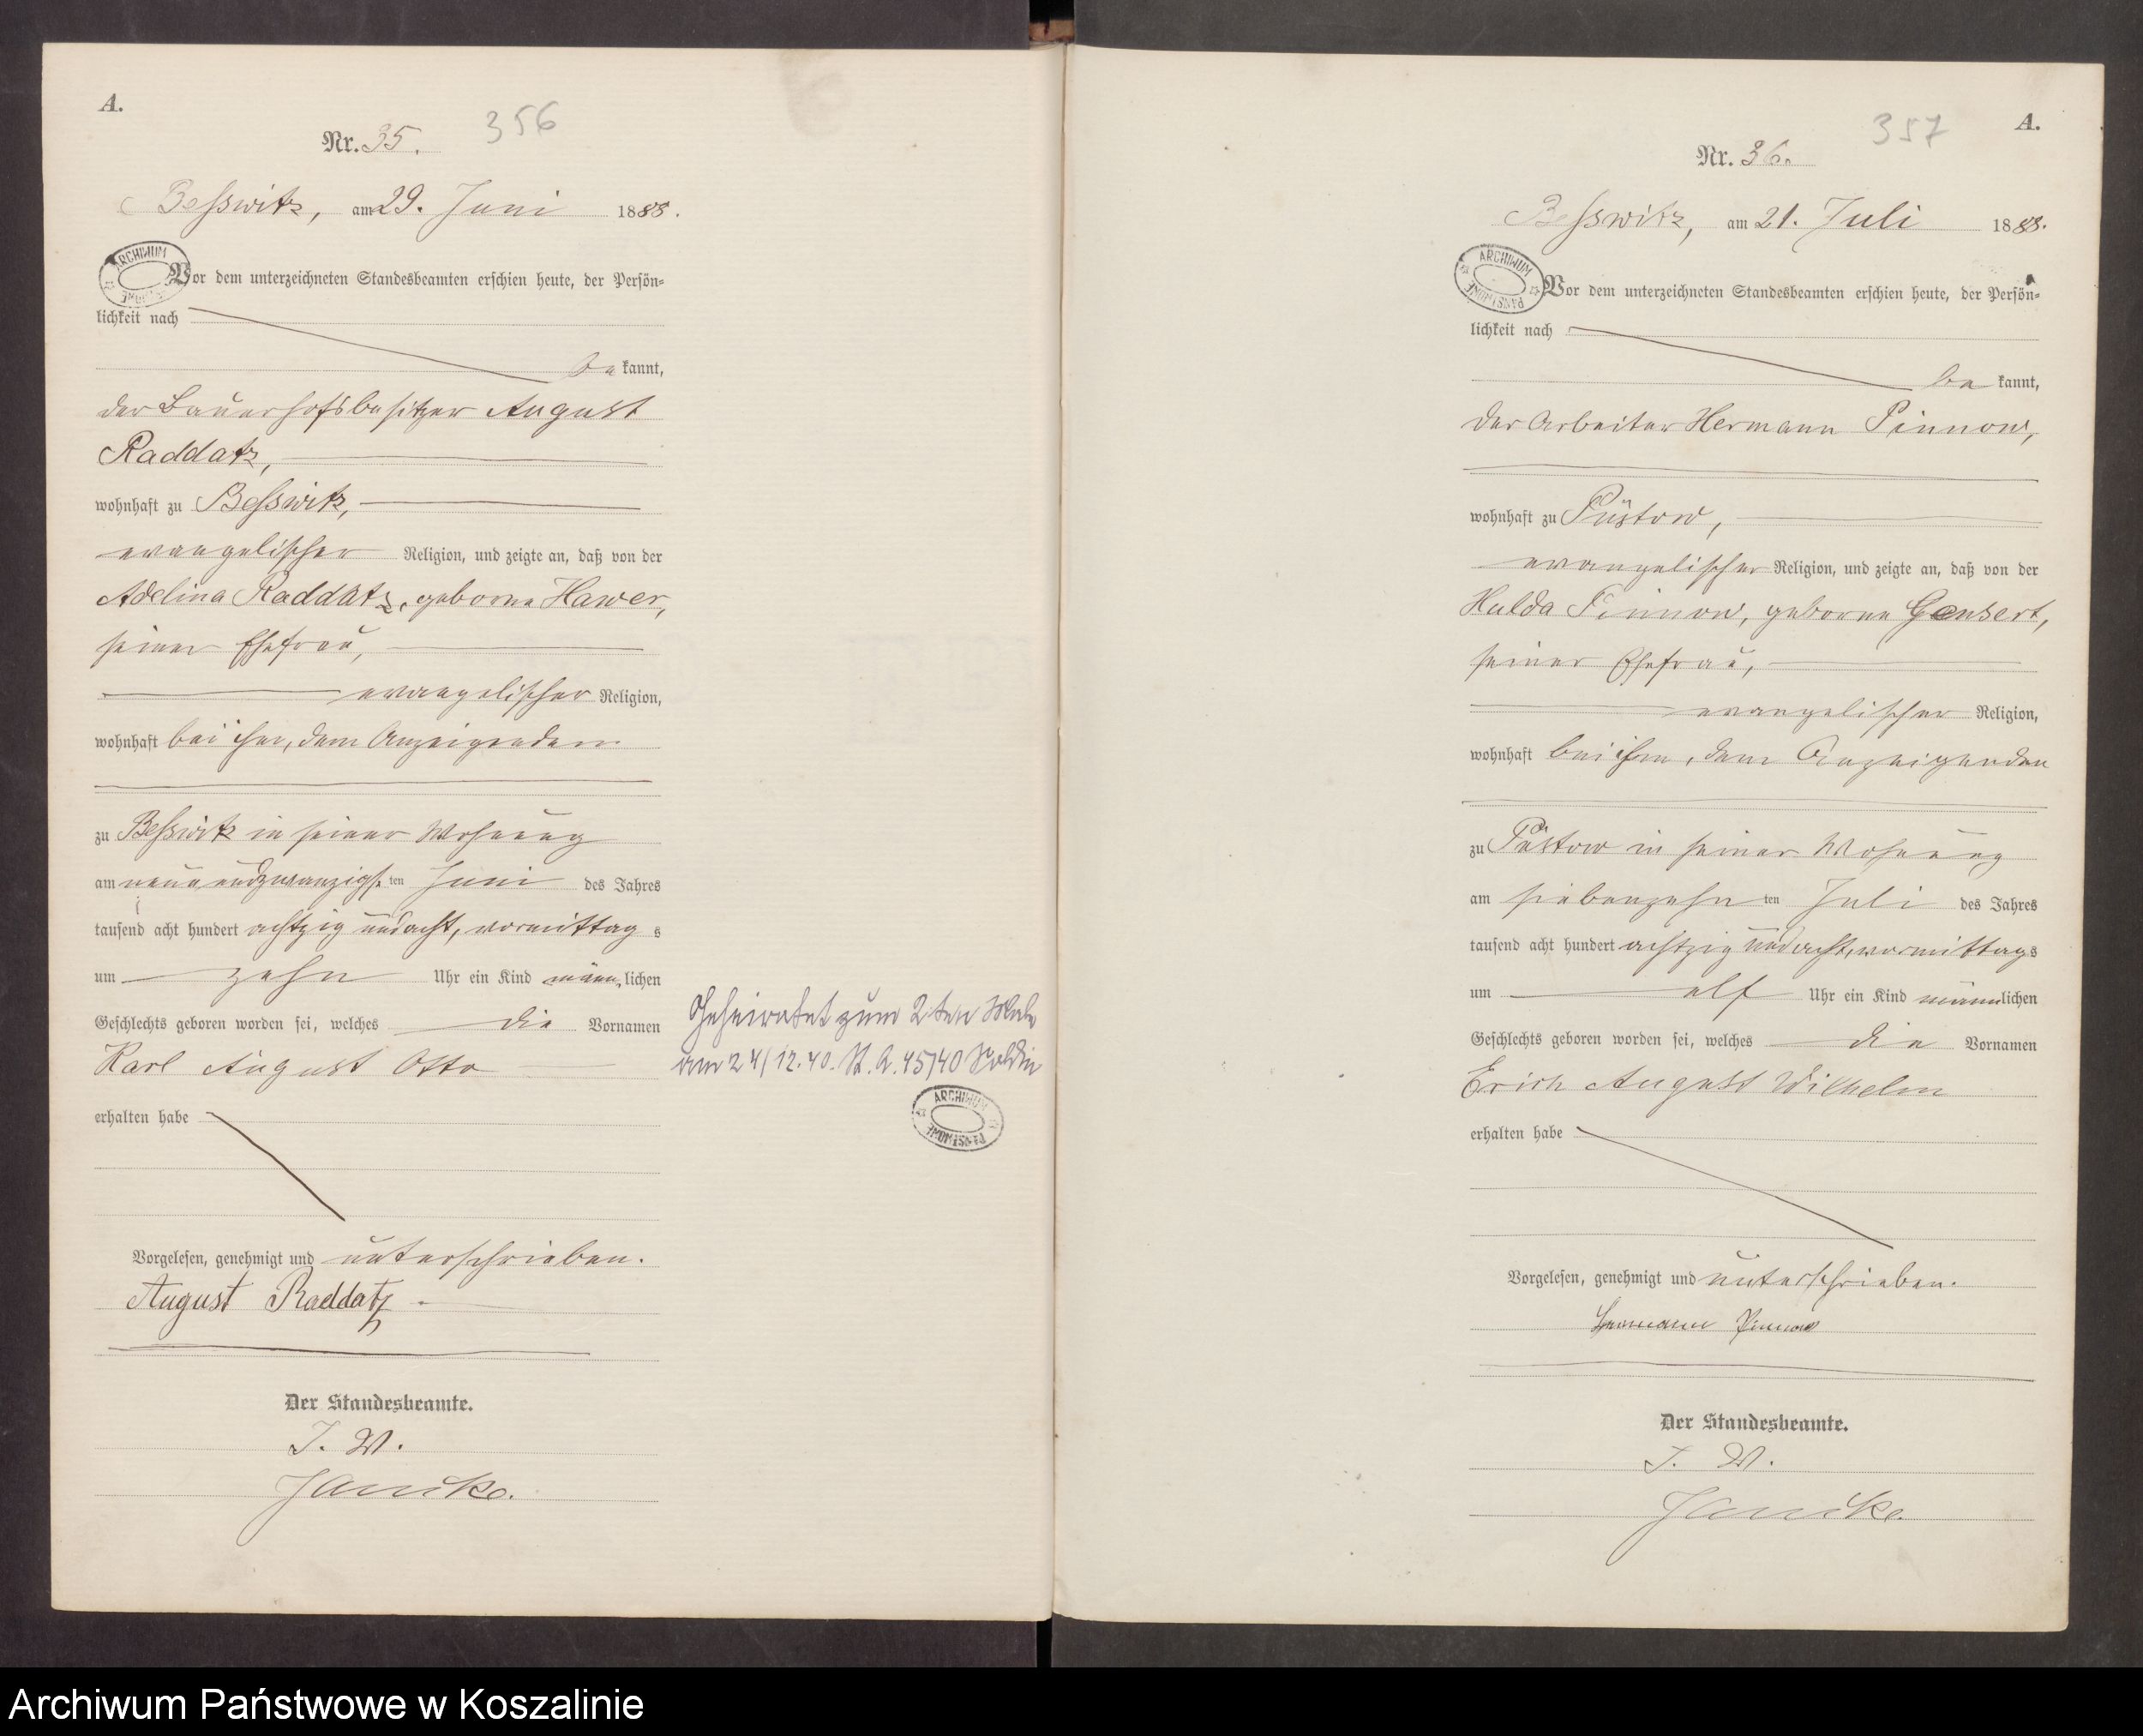 A.
356
Nr. 35.
Besswitz, am 29. Juni 1888.
ARCHIWUM PAŃSTWOWE
Vor dem unterzeichneten Standesbeamten erschien heute, der Persön-
lichkeit nach
be kannt,
der Bauerhofsbesitzer August
Raddatz,
wohnhaft zu Besswitz,
evangelischer Religion, und zeigte an, daß von der
Adelina Raddatz, geborne Hawer,
seiner Ehefrau,
evangelischer Religion,
wohnhaft bei ihm, dem Anzeigenden
zu Besswitz in seiner Wohnung
am neunundzwanzigsten Juni des Jahres
tausend acht hundert achtzig und acht, vormittags
um zehn Uhr ein Kind männlichen
Geschlechts geboren worden sei, welches die Vornamen
Karl August Otto
erhalten habe
Vorgelesen, genehmigt und unterschrieben.
August Raddatz
Der Standesbeamte.
J. V.
Janike.
Geheiratet zum 2ten Male
am 24/12.40. St. A. 45/40 Soldin
ARCHIWUM PAŃSTWOWE
357
A.
Nr. 36.
Besswitz, am 21. Juli 1888.
ARCHIWUM PAŃSTWOWE
Vor dem unterzeichneten Standesbeamten erschien heute, der Persön-
lichkeit nach
be kannt,
der Arbeiter Hermann Pinnow,
wohnhaft zu Püstow,
evangelischer Religion, und zeigte an, daß von der
Hulda Pinnow, geborne Gensert,
seiner Ehefrau,
evangelischer Religion,
wohnhaft bei ihm, dem Anzeigenden
zu Püstow in seiner Wohnung
am siebenzehnten Juli des Jahres
tausend acht hundert achtzig und acht, vormittags
um elf Uhr ein Kind männlichen
Geschlechts geboren worden sei, welches die Vornamen
Erich August Wilhelm
erhalten habe
Vorgelesen, genehmigt und unterschrieben.
Hermann Pinnow
Der Standesbeamte.
J. V.
Janike.
Archiwum Państwowe w Koszalinie